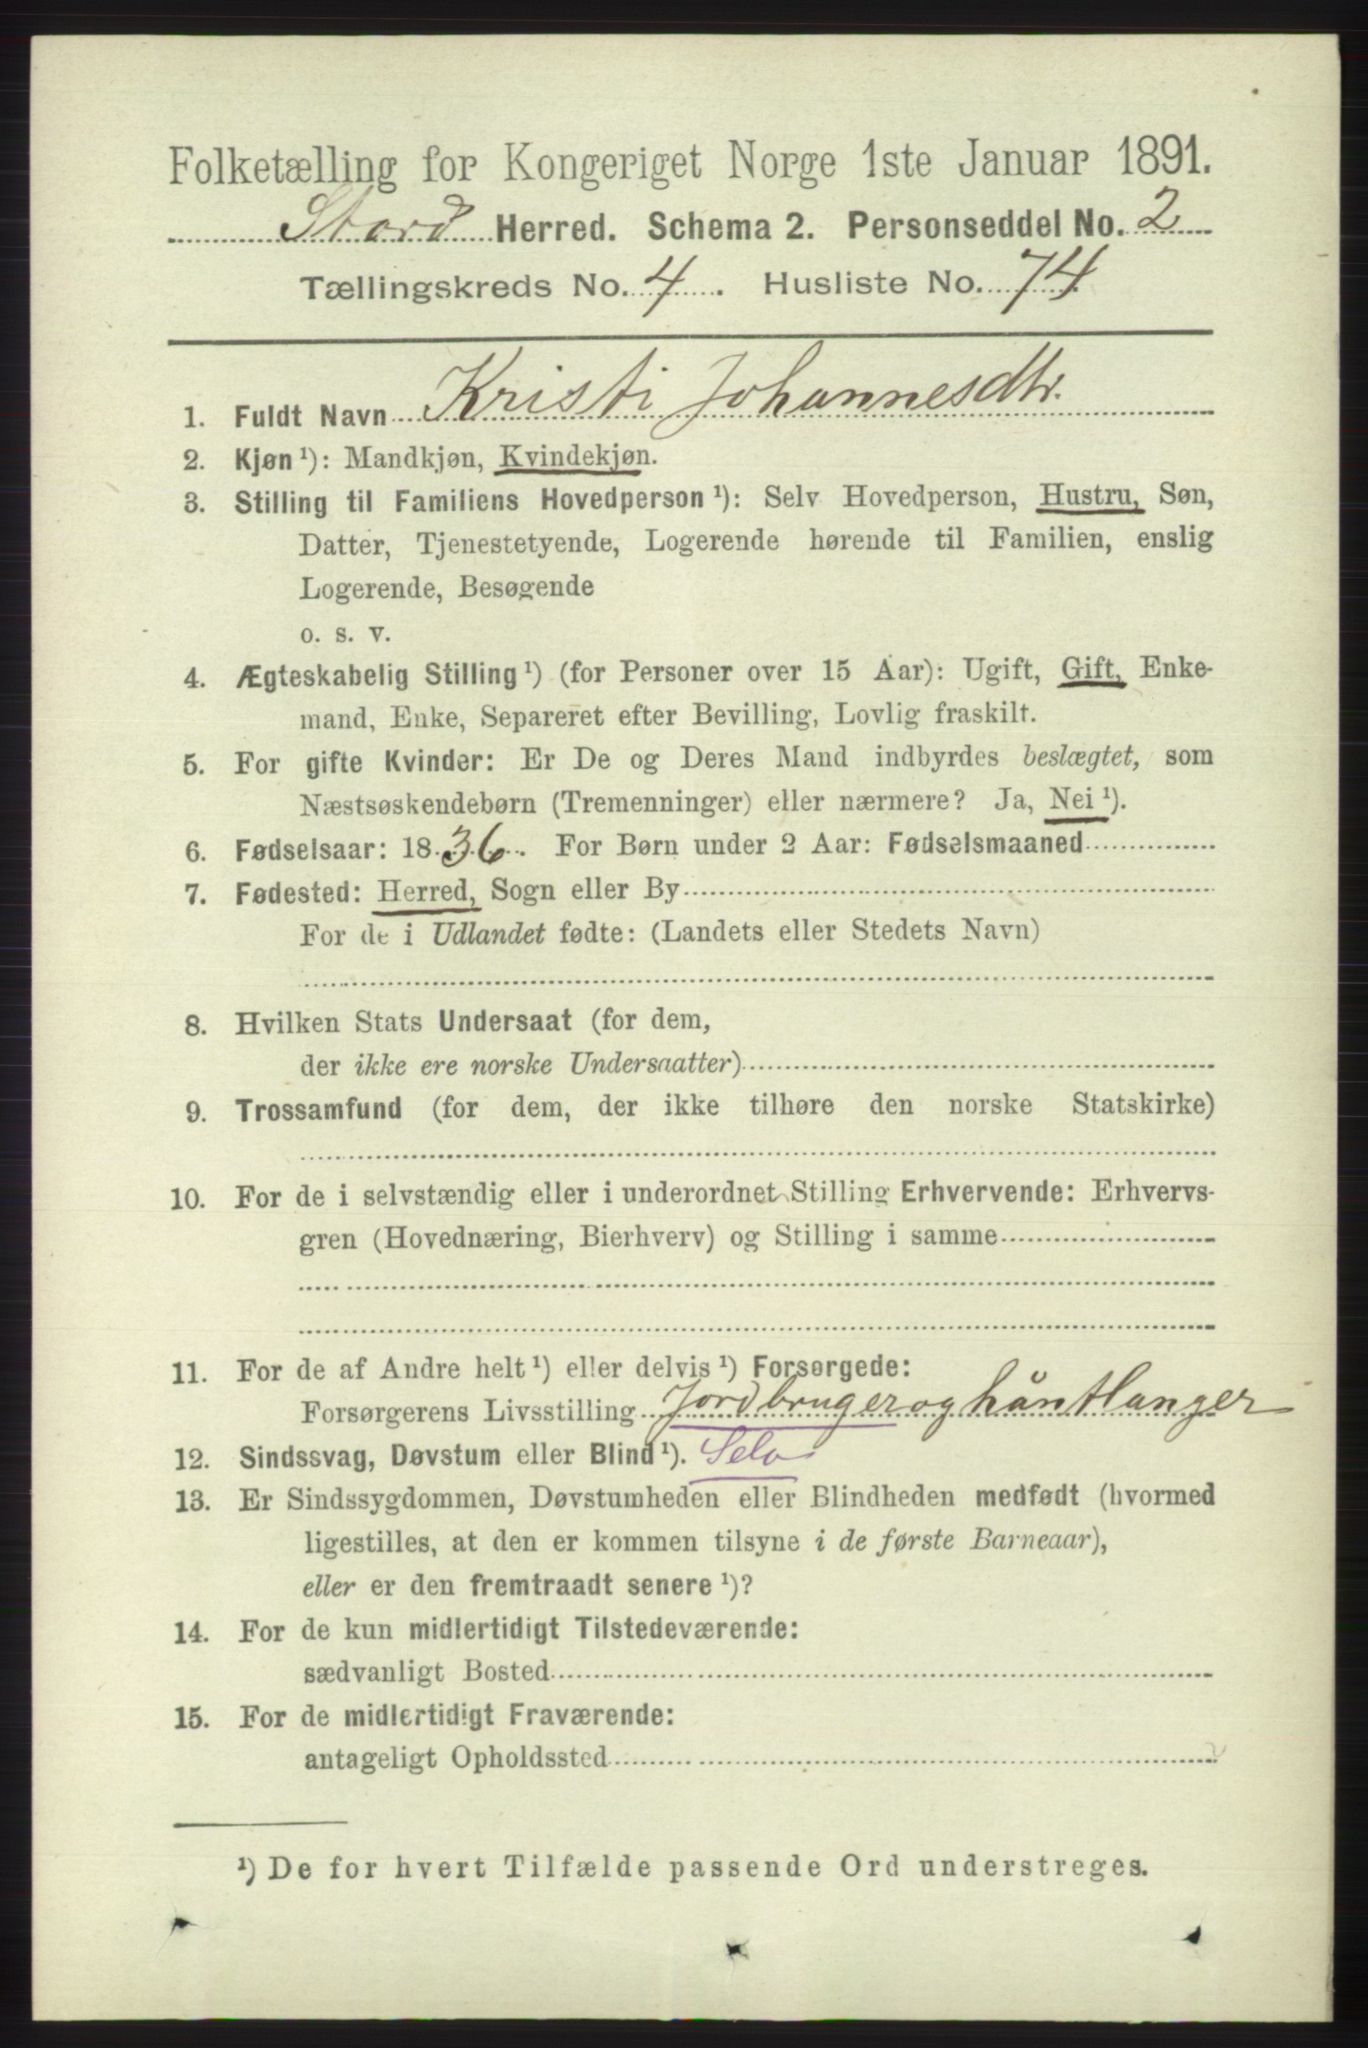 Folketælling for Kongeriget Norge 1ste Januar 1891.
Stord Herred. Schema 2. Personseddel No. 2
Tællingskreds No. 4. Husliste No. 74
1. Fuldt Navn Kristi Johannesdtr.
2. Kjøn ¹): Mandkjøn, Kvindekjøn.
3. Stilling til Familiens Hovedperson ¹): Selv Hovedperson, Hustru, Søn,
Datter, Tjenestetyende, Logerende hørende til Familien, enslig
Logerende, Besøgende
o. s. v.
4. Ægteskabelig Stilling ¹) (for Personer over 15 Aar): Ugift, Gift, Enke-
mand, Enke, Separeret efter Bevilling, Lovlig fraskilt.
5. For gifte Kvinder: Er De og Deres Mand indbyrdes beslægtet, som
Næstsøskendebørn (Tremenninger) eller nærmere? Ja, Nei ¹).
6. Fødselsaar: 1836. For Børn under 2 Aar: Fødselsmaaned
7. Fødested: Herred, Sogn eller By
For de i Udlandet fødte: (Landets eller Stedets Navn)
8. Hvilken Stats Undersaat (for dem,
der ikke ere norske Undersaatter)
9. Trossamfund (for dem, der ikke tilhøre den norske Statskirke)
10. For de i selvstændig eller i underordnet Stilling Erhvervende: Erhvervs-
gren (Hovednæring, Bierhverv) og Stilling i samme
11. For de af Andre helt ¹) eller delvis ¹) Forsørgede:
Forsørgerens Livsstilling Jordbruger og håntlanger
12. Sindssvag, Døvstum eller Blind ¹). Selv
13. Er Sindssygdommen, Døvstumheden eller Blindheden medfødt (hvormed
ligestilles, at den er kommen tilsyne i de første Barneaar),
eller er den fremtraadt senere ¹)?
14. For de kun midlertidigt Tilstedeværende:
sædvanligt Bosted
15. For de midlertidigt Fraværende:
antageligt Opholdssted
¹) De for hvert Tilfælde passende Ord understreges.